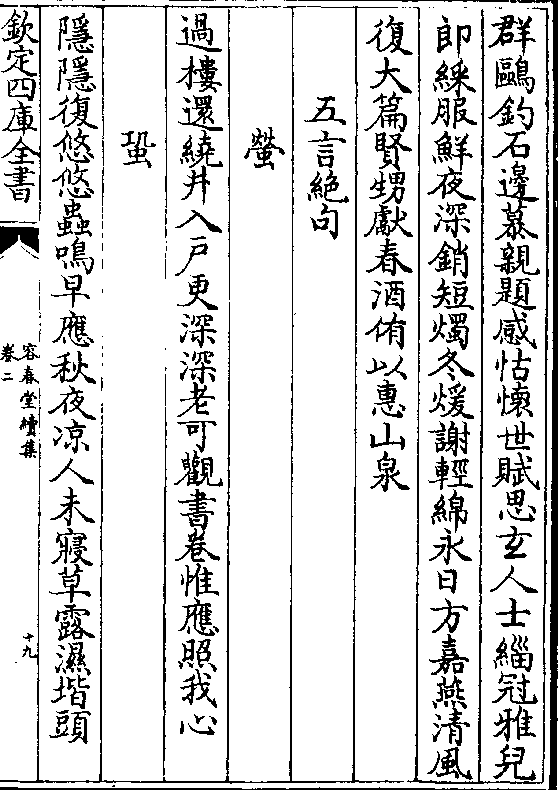 群鷗釣石邊慕親題感怙懐世賦思玄人士緇冠雅兒
即綵服鮮夜深銷短燭冬煖謝輕綿永日方嘉燕清風
復大篇賢甥獻春酒侑以惠山泉
五言絶句
螢
過樓還繞井入戶更深深老可觀書卷惟應照我心
蛩
隱隱復悠悠蟲鳴早應秋夜凉人未寢草露濕堦頭
欽定四庫全書
容春堂續集
卷二
十九